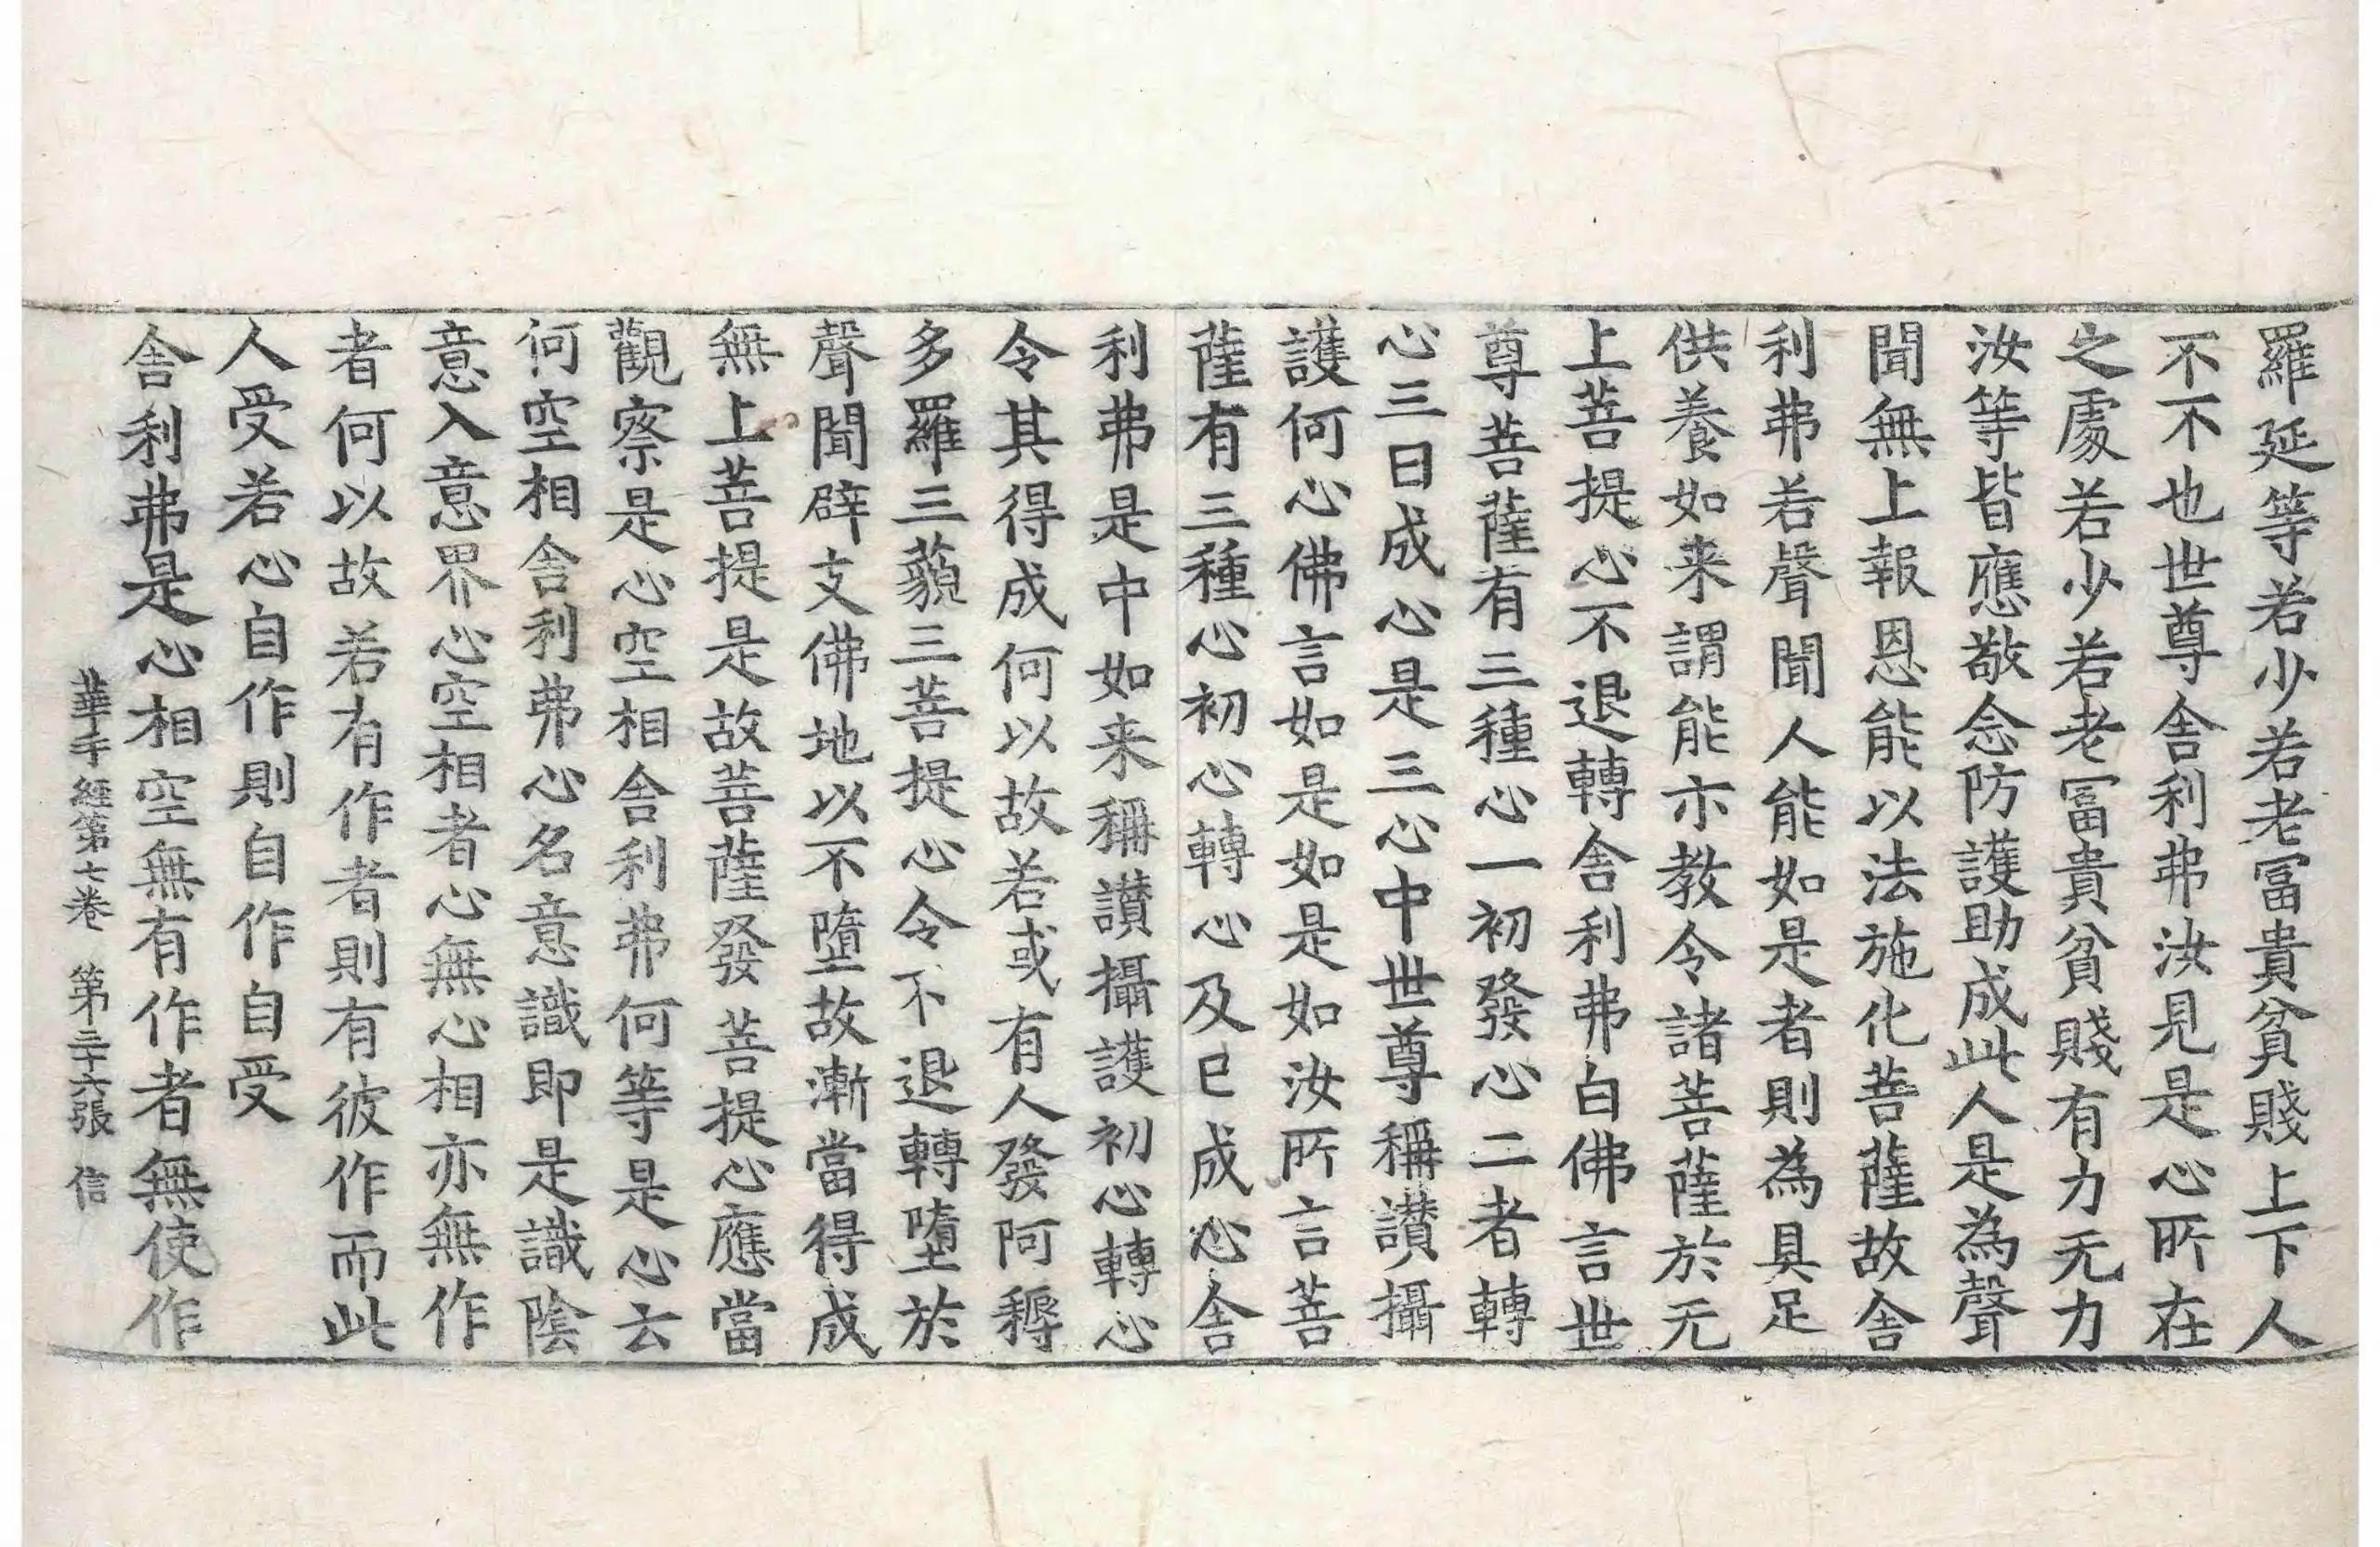 羅延等若少若老冨貴貧賤上下人
不不也世尊舍利弗汝見是心所在
之處若少若老冨貴貧賤有力无力
汝等皆應敬念防護助成此人是為聲
聞無上報恩能以法施化菩薩故舍
利弗若聲聞人能如是者則為具足
供養如来謂能亦教令諸菩薩於无
上菩提心不退轉舍利弗白佛言世
尊菩薩有三種心一初發心二者轉
心三曰成心是三心中世尊稱讃攝
護何心佛言如是如是如汝所言菩
薩有三種心初心轉心及已成心舍
利弗是中如来稱讃攝護初心轉心
令其得成何以故若或有人發阿耨
多羅三藐三菩提心令不退轉墮於
聲聞辟支佛地以不墮故漸當得成
無上菩提是故菩薩發菩提心應當
觀察是心空相舍利弗何等是心云
何空相舍利弗心名意識即是識陰
意入意界心空相者心無心相亦無作
者何以故若有作者則有彼作而此
人受若心自作則自作自受
舍利弗是心相空無有作者無使作
華手經第七卷 第三十六張 信